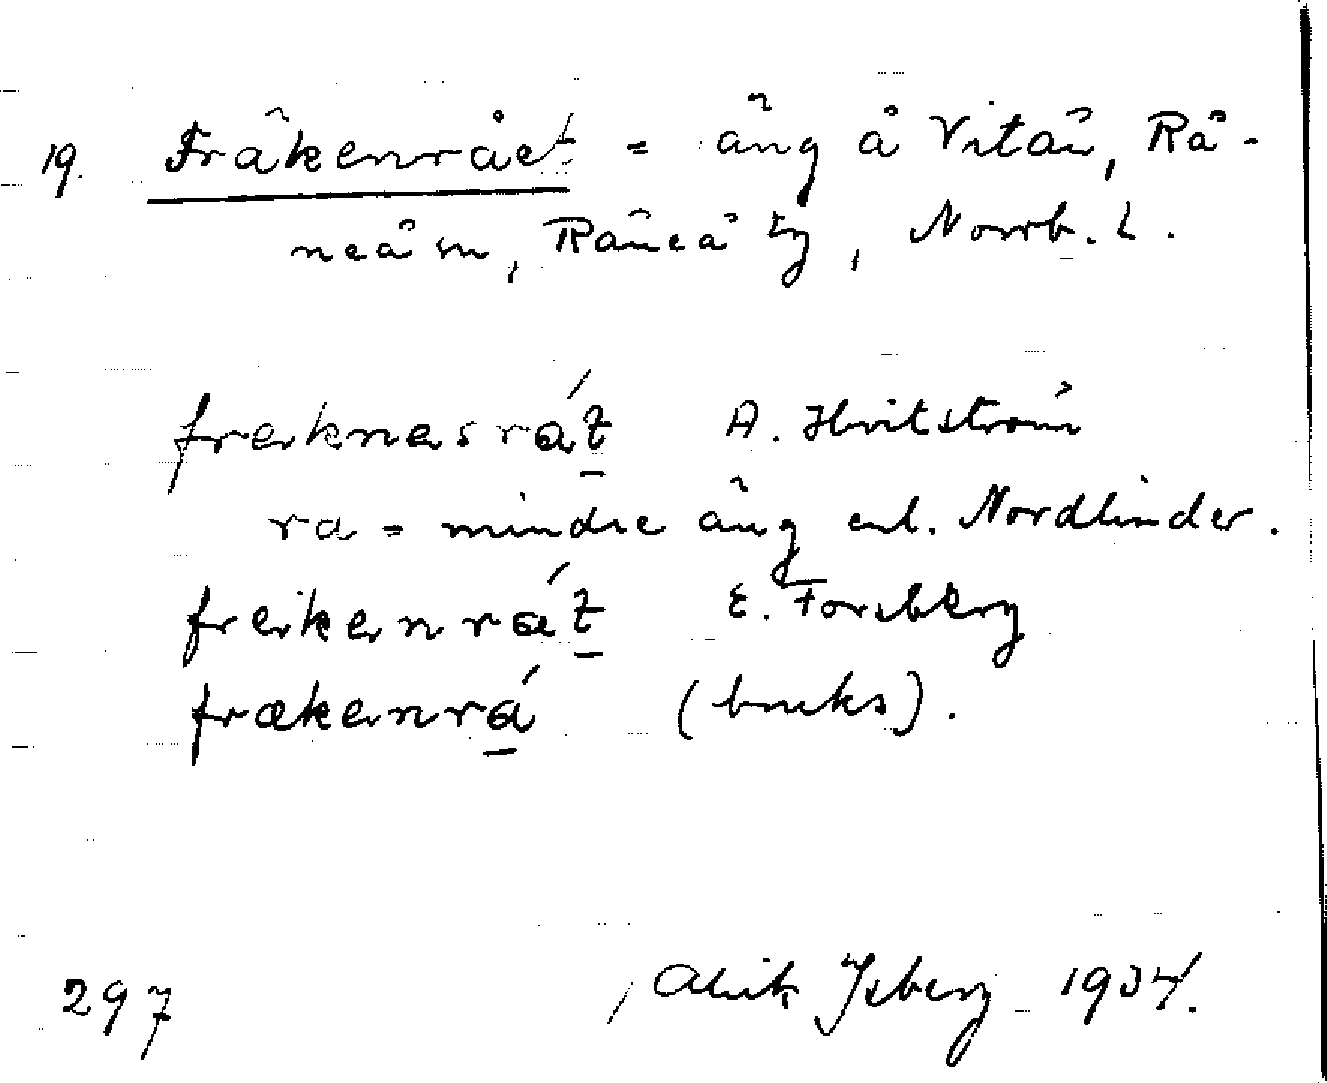 19. Fräkenrået = äng å Vitån, Rå-
neå sn, Råneå tg, Norrb. L.
freknasrát A. Hvitström
ra = mindre äng enl. Nordlinder.
freikenrát E. Forsberg
frækenrá (bruks).
297 Alrik Isberg 1934.